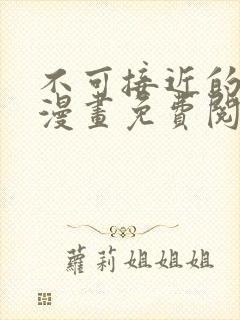 不可接近的
漫畫免費閱
蘿莉姐姐姐